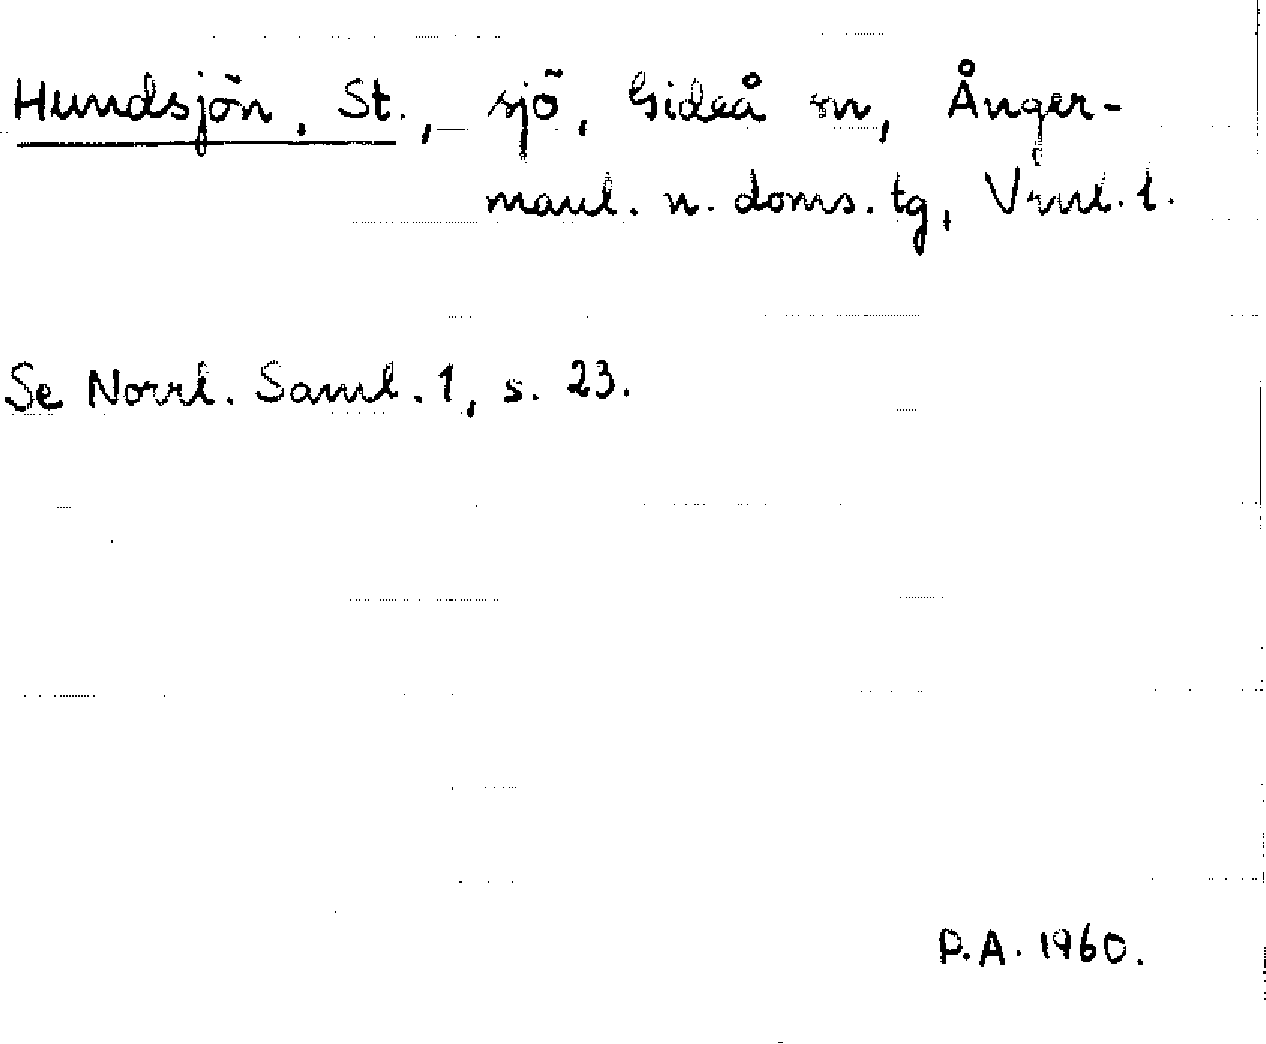 Hundsjön, St., sjö, Gideå sn, Ånger-
manl. n. doms. tg, Vrnl. l.
Se Norrl. Saml. 1, s. 23.
P.A. 1960.